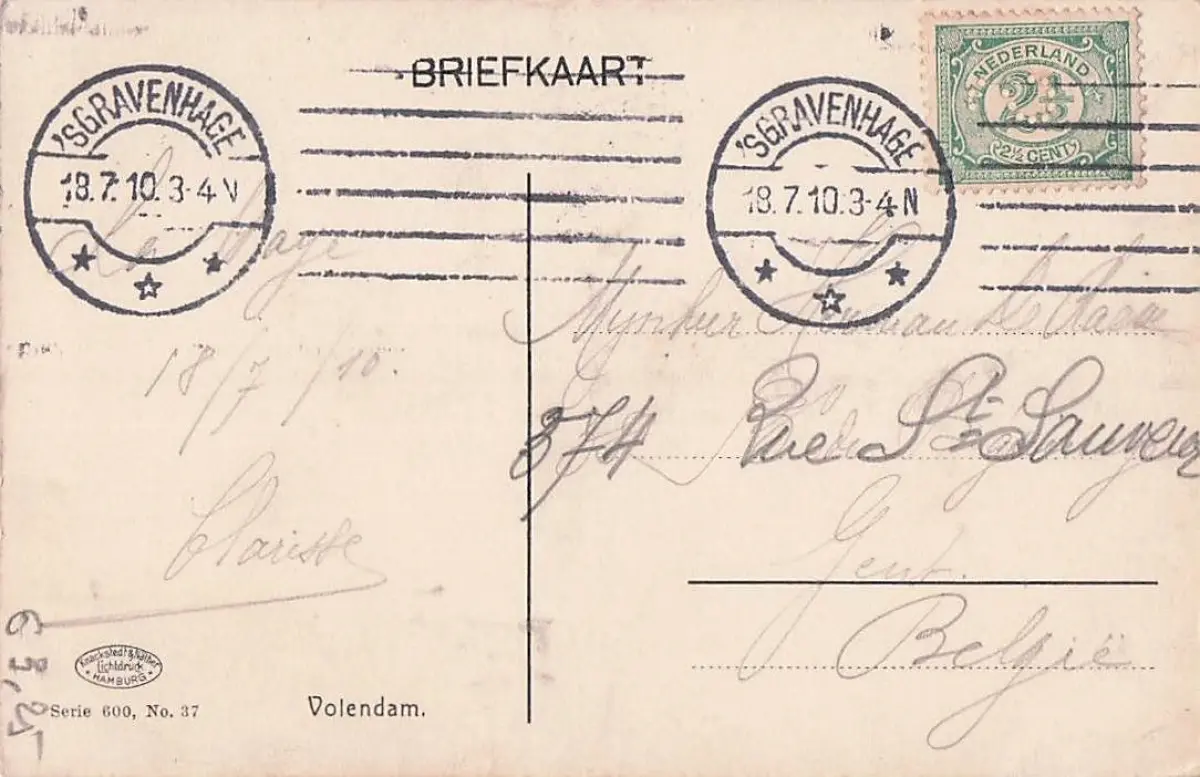 BRIEFKAART
'SGRAVENHAGE
18.7.10.3-4 N
'SGRAVENHAGE
18.7.10.3-4 N
NEDERLAND
2½
2½ CENT
La Haye
18/7/10.
Clarisse
Mynheer Herman de
374 Rue St. Sauveur
Gent.
België
Knackstedt & Näther
Lichtdruck
HAMBURG
Serie 600, No. 37
Volendam.